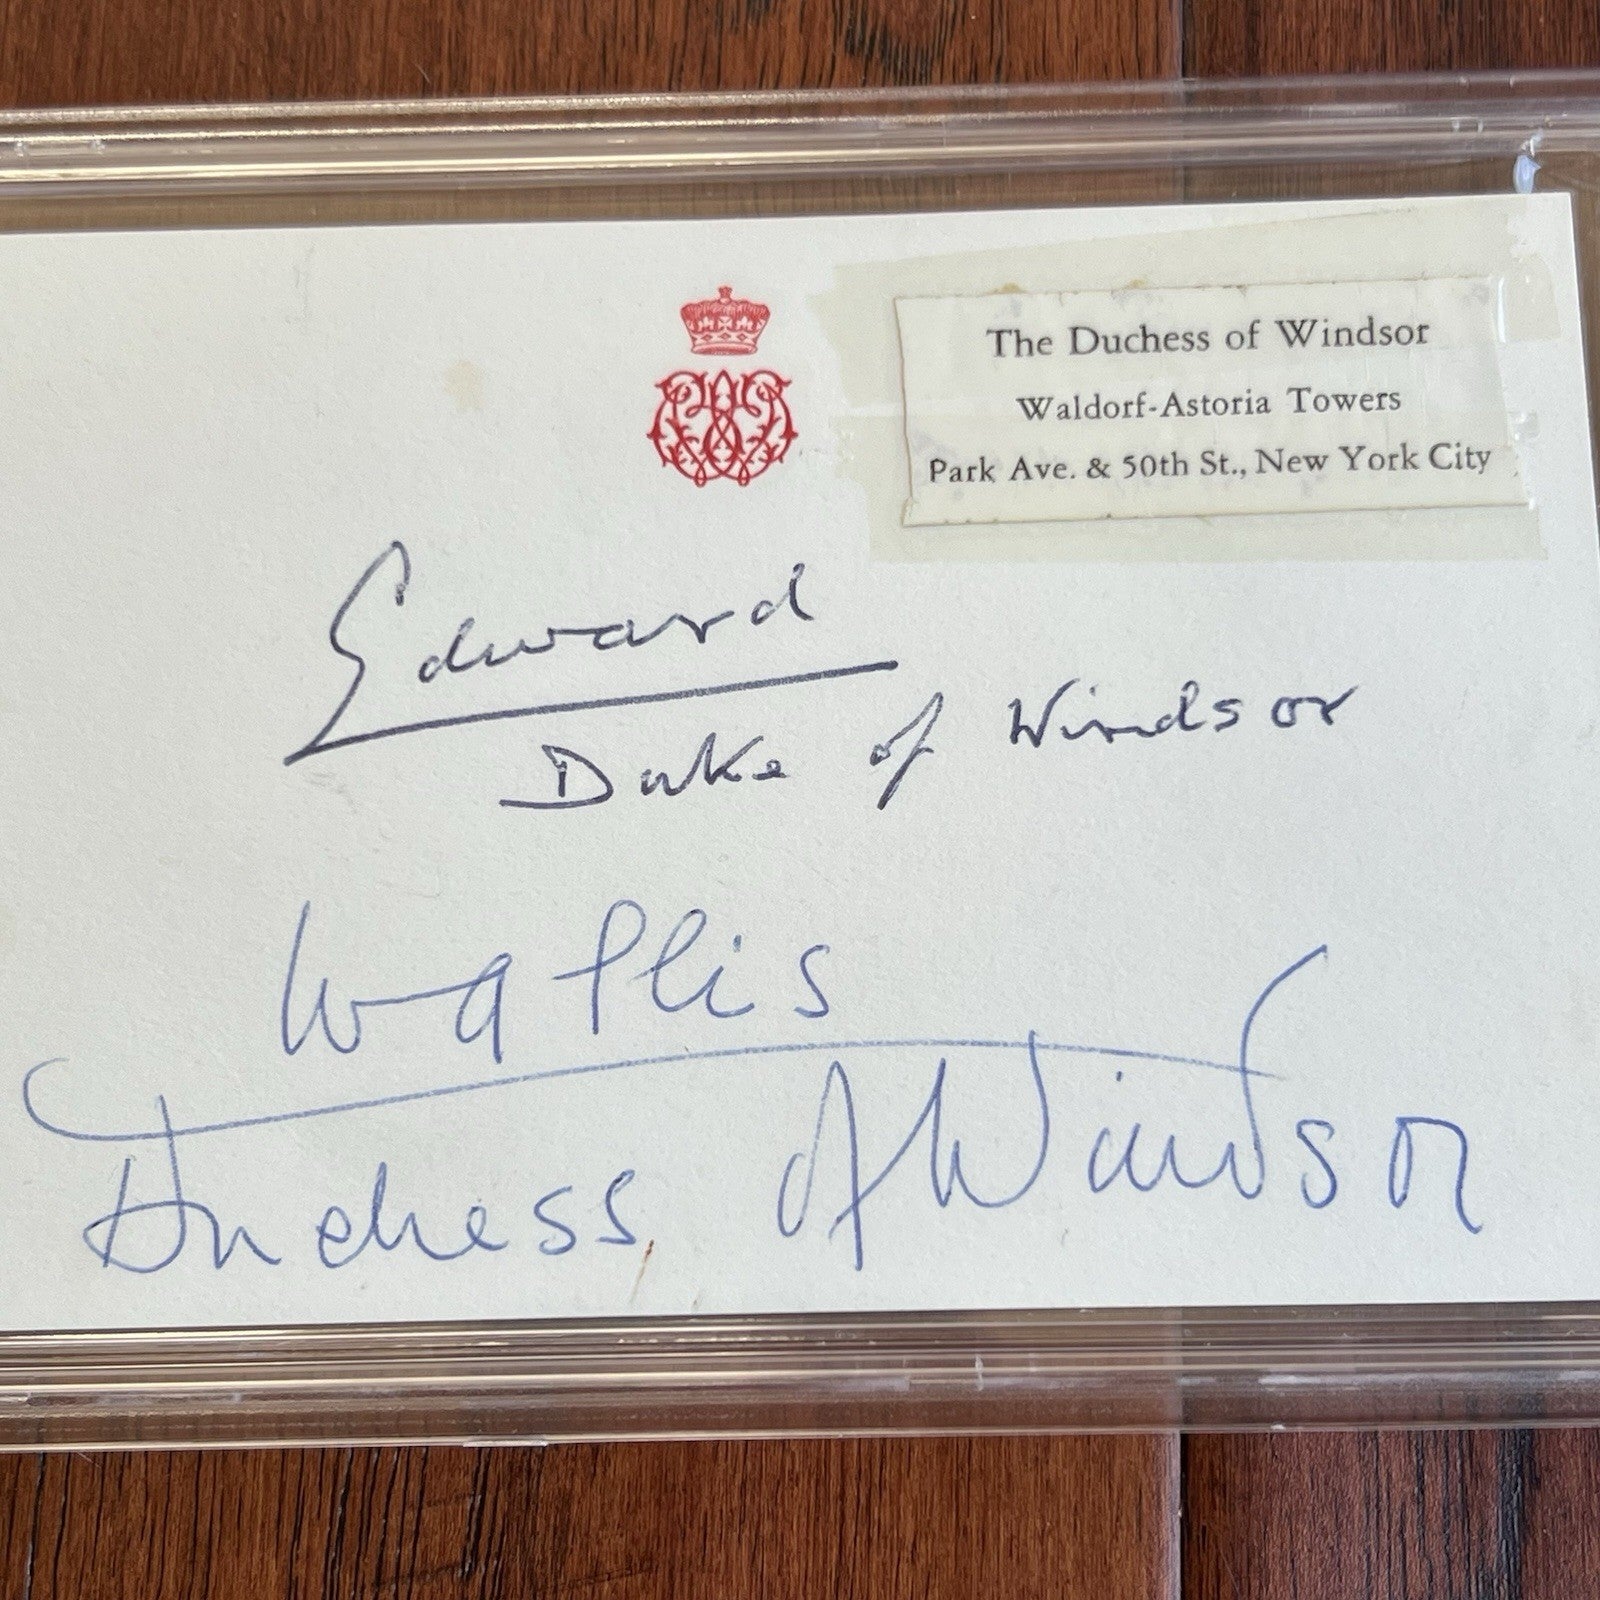 The Duchess of Windsor
Waldorf-Astoria Towers
Park Ave. & 50th St., New York City
Edward
Duke of Windsor
Wallis
Duchess of Windsor